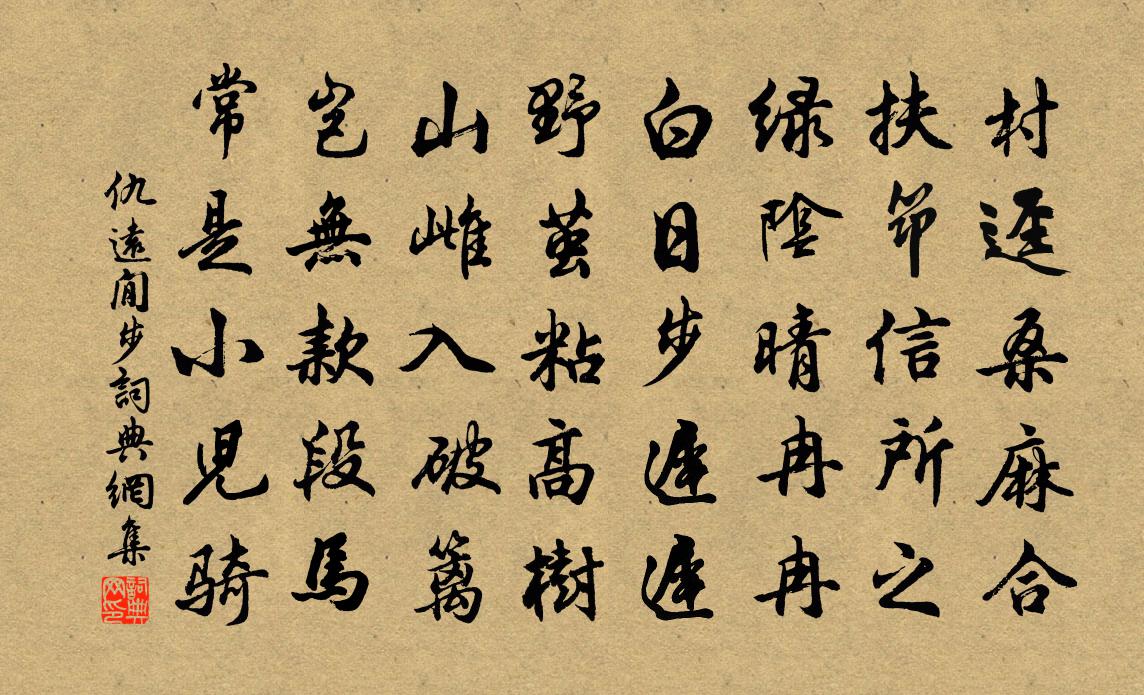 村逕桑麻合
扶筇信所之
緑陰晴冉冉
白日步遲遲
野茧粘高樹
山雌入破篱
豈無款段馬
常是小児騎
仇遠閒步詞典網集
詞典网印